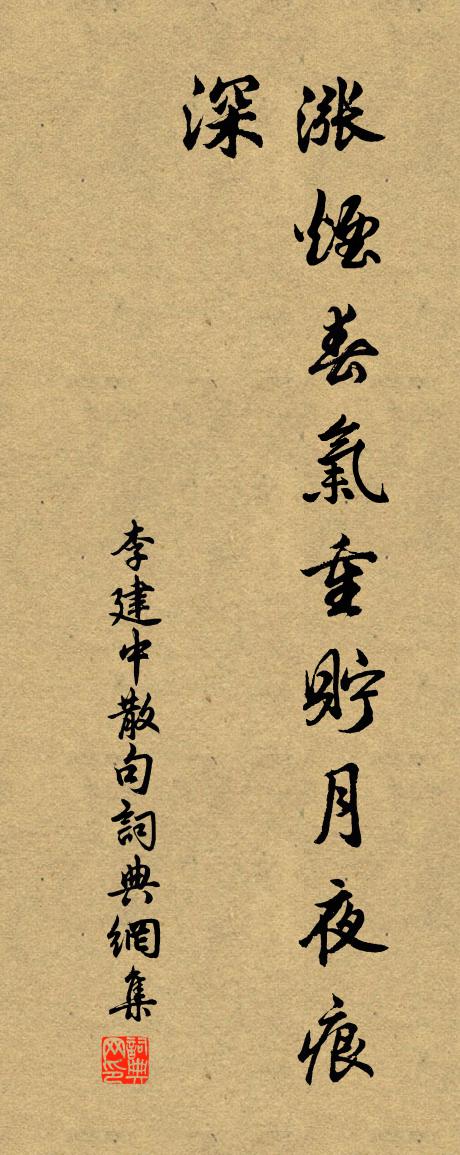 漲煙春氣重貯月夜痕
深
李建中散句詞典網集
詞典网印